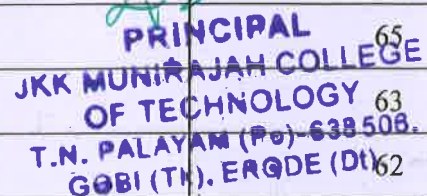 PRINCIPAL
65
JKK MUNIRAJAH COLLEGE
OF TECHNOLOGY
63
T.N. PALAYAM (Po)-638 506.
GOBI (TK), ERODE (Dt)
62